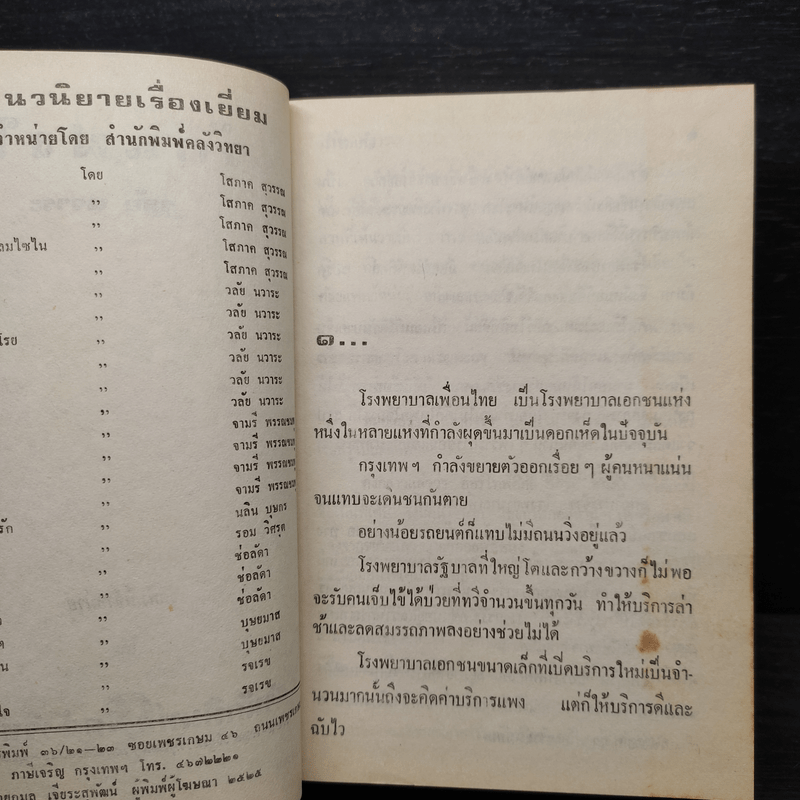 นวนิยายเรื่องเยี่ยม
จำหน่ายโดย สำนักพิมพ์คลังวิทยา
โดย โสภาค สุวรรณ
,, โสภาค สุวรรณ
,, โสภาค สุวรรณ
ลมไซไน ,, โสภาค สุวรรณ
,, โสภาค สุวรรณ
,, วลัย นวาระ
,, วลัย นวาระ
โรย ,, วลัย นวาระ
,, วลัย นวาระ
,, วลัย นวาระ
,, วลัย นวาระ
,, จามรี พรรณชมพู
,, จามรี พรรณชมพู
,, จามรี พรรณชมพู
,, จามรี พรรณชมพู
,, นลิน บุษกร
รัก ,, รอม วิศรุต
,, ช่อลัดา
,, ช่อลัดา
,, ช่อลัดา
,, บุษยมาส
,, บุษยมาส
,, รจเรข
,, รจเรข
พิมพ์ ๓๖/๒๑—๒๓ ซอยเพชรเกษม ๔๖ ถนนเพชรเกษม
ภาษีเจริญ กรุงเทพฯ โทร. ๔๖๗๒๒๒๑
เจียระสพัฒน์ ผู้พิมพ์ผู้โฆษณา ๒๕๒๕
๑...
โรงพยาบาลเพื่อนไทย เป็นโรงพยาบาลเอกชนแห่ง
หนึ่งในหลายแห่งที่กำลังผุดขึ้นมาเป็นดอกเห็ดในปัจจุบัน
กรุงเทพฯ กำลังขยายตัวออกเรื่อยๆ ผู้คนหนาแน่น
จนแทบจะเดินชนกันตาย
อย่างน้อยรถยนต์ก็แทบไม่มีถนนวิ่งอยู่แล้ว
โรงพยาบาลรัฐบาลที่ใหญ่โตและกว้างขวางก็ไม่พอ
จะรับคนเจ็บไข้ได้ป่วยที่ทวีจำนวนขึ้นทุกวัน ทำให้บริการล่า
ช้าและลดสมรรถภาพลงอย่างช่วยไม่ได้
โรงพยาบาลเอกชนขนาดเล็กที่เปิดบริการใหม่เป็นจำ-
นวนมากนั้นถึงจะคิดค่าบริการแพง แต่ก็ให้บริการดีและ
ฉับไว